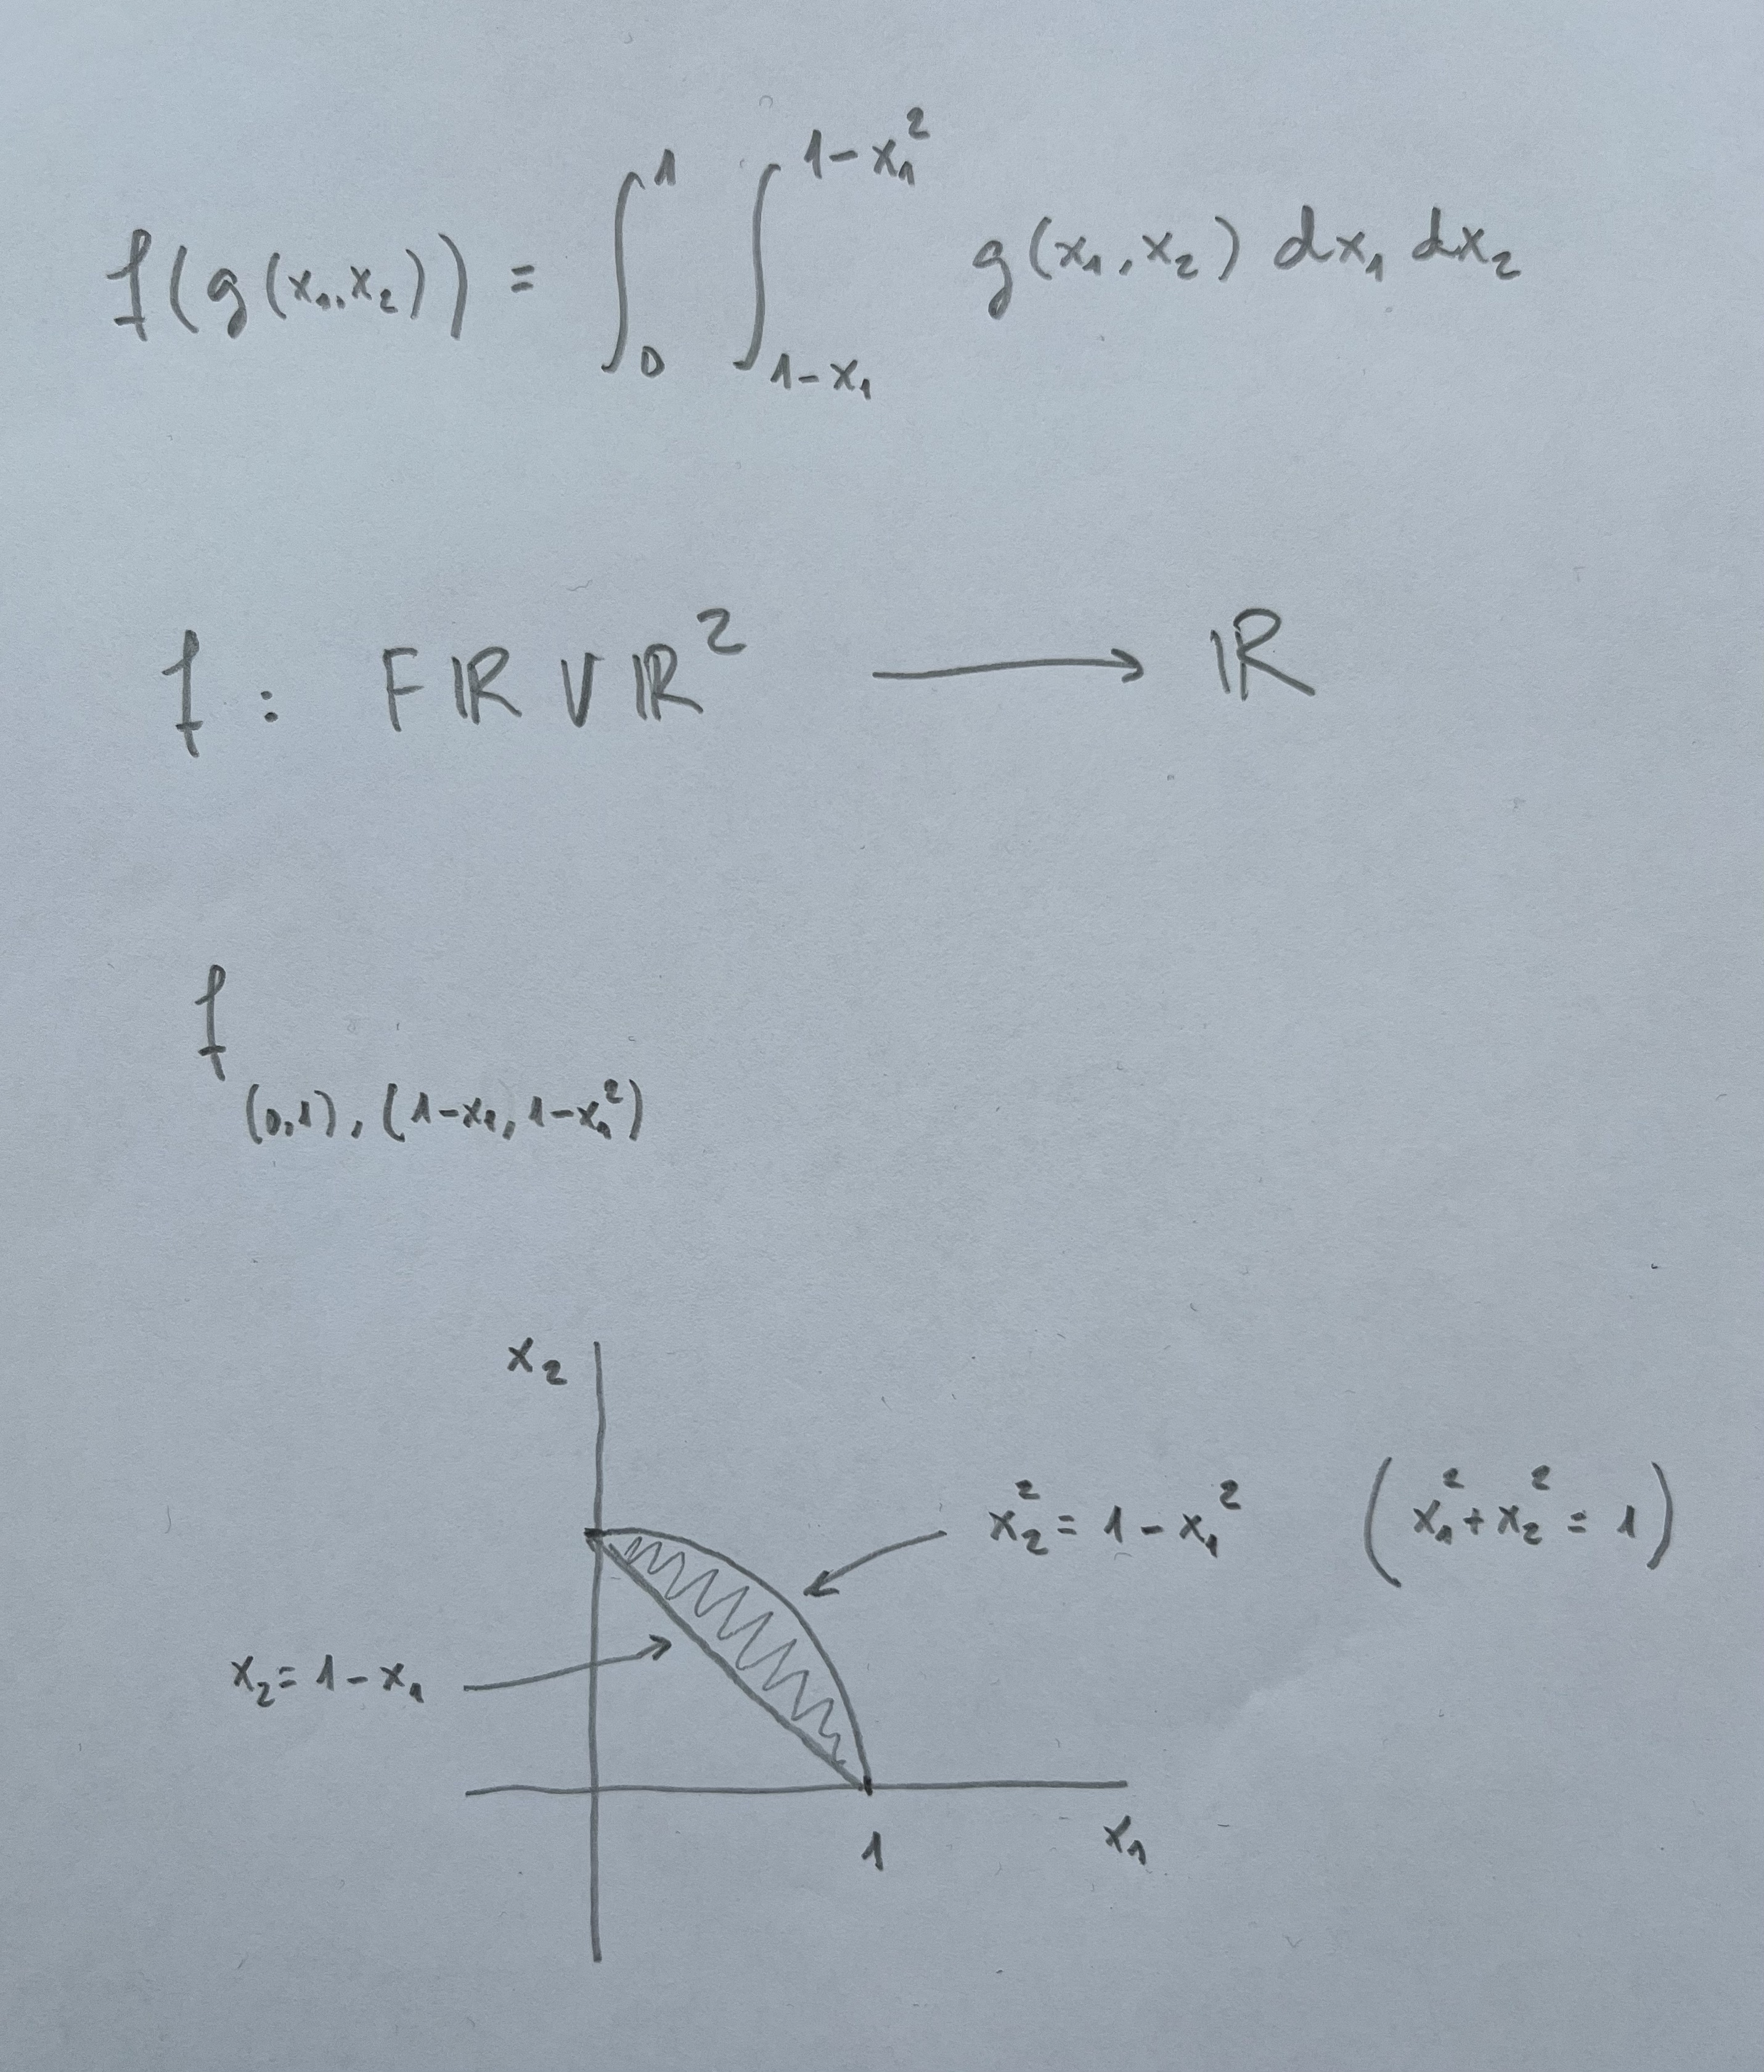 f(g(x₁,x₂)) = ∫₀¹ ∫_{1-x₁}^{1-x₁²} g(x₁,x₂) dx₁ dx₂
f : FℝVℝ² ⟶ ℝ
f_{(0,1), (1-x₁, 1-x₁²)}
x₂
x₂² = 1 - x₁² (x₁² + x₂² = 1)
x₂ = 1 - x₁
1 x₁